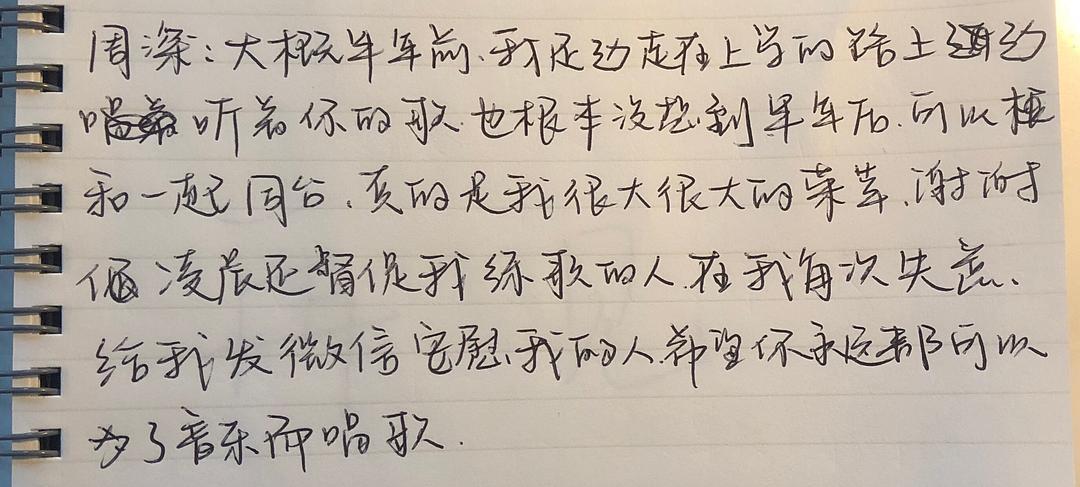 周深：大概半年前、我还边走在上学的路上边
唱 听着你的歌.也根本没想到半年后.可以
和一起同台、真的是我很大很大的荣幸.谢谢
凌晨还督促我练歌的人.在我每次失意、
给我发微信安慰我的人.希望你永远都可以
为了音乐而唱歌.